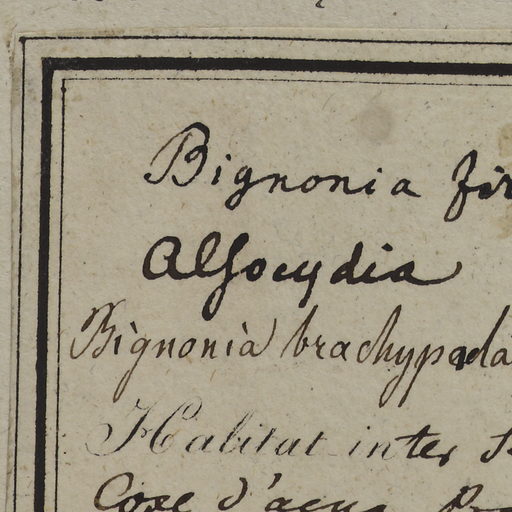 Bignonia
Alsocydia
Bignonia brachypoda
Habitat inter
Coxe d'acua